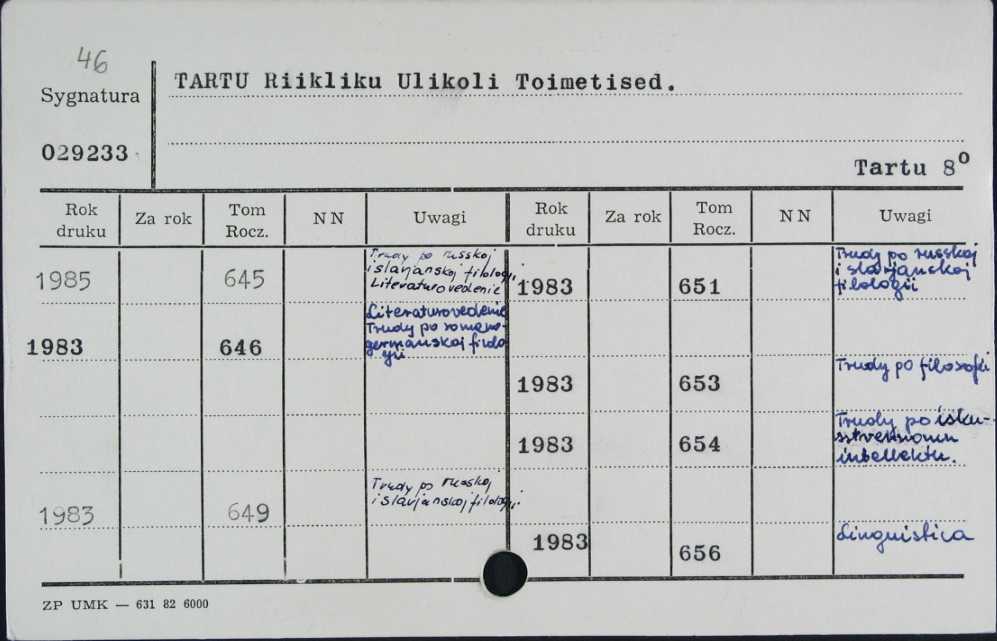 46
Sygnatura
029233
TARTU Riikliku Ulikoli Toimetised.
Tartu 8⁰
Rok druku
Za rok
Tom Rocz.
NN
Uwagi
Rok druku
Za rok
Tom Rocz.
NN
Uwagi
1985 645 Trudy po russkoj
i slavjanskoj filologii,
Literaturovedenie
1983 646 Literaturovedenie
Trudy po romano-
germanskoj filolo
gii
1983 649 Trudy po russkoj
i slavjanskoj filologii
1983 651 Trudy po russkoj
i slavjanskoj
filologii
1983 653 Trudy po filosofii
1983 654 Trudy po isku-
sstvennomu
intellektu.
1983 656 Linguistica
ZP UMK — 631 82 6000